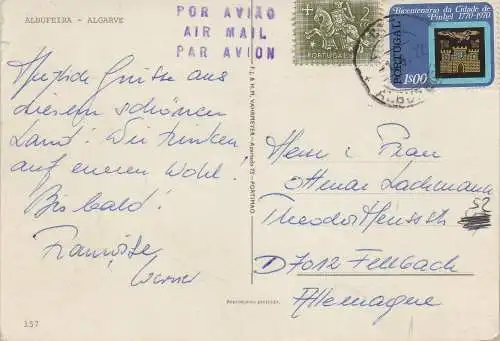 ALBUFEIRA - ALGARVE
POR AVIÃO
AIR MAIL
PAR AVION
Herzliche Grüsse aus
diesem schönen
Land! Wir trinken
auf eueren Wohl!
Bis bald!
Werner
157
PORTUGAL
Bicentenário da Cidade de
Pinhel 1770-1970
PORTUGAL
1$00
Herr & Frau
Ottmar Lachmann
Theodor Heuss str
52
D7012 Fellbach
Allemagne
Reprodução proibida.